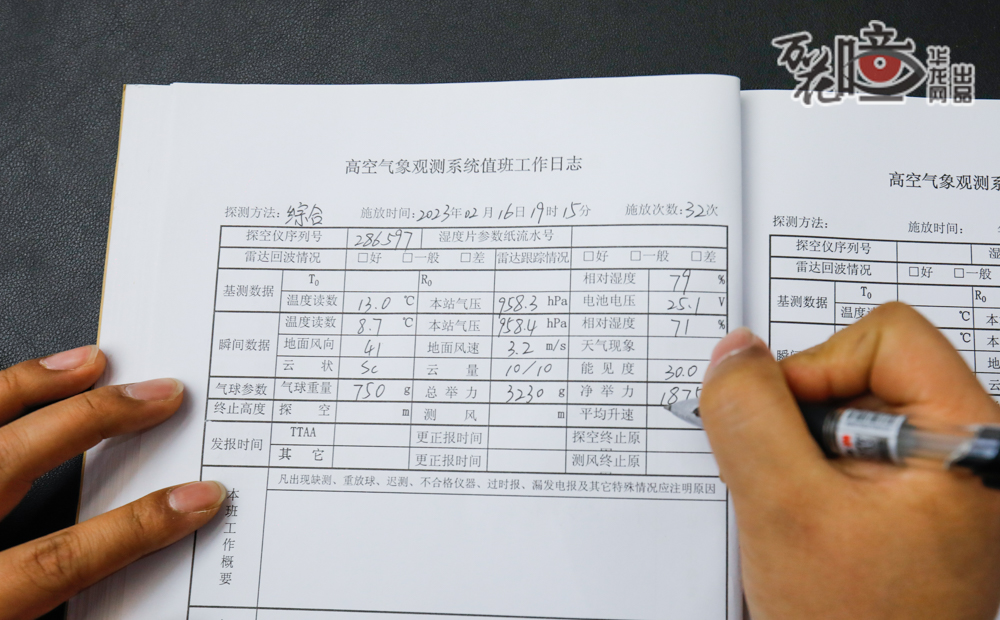 百花瞳
华龙网
出品
高空气象观测系统值班工作日志
探测方法: 综合 施放时间: 2023年02月16日19时15分 施放次数: 32次
探空仪序列号 286597 湿度片参数纸流水号
雷达回波情况 □好 □一般 □差 雷达跟踪情况 □好 □一般 □差
基测数据 T₀ R₀ 相对湿度 79 %
温度读数 13.0 ℃ 本站气压 958.3 hPa 电池电压 25.1 V
瞬间数据 温度读数 8.7 ℃ 本站气压 958.4 hPa 相对湿度 71 %
地面风向 41 地面风速 3.2 m/s 天气现象
云状 Sc 云量 10/10 能见度 30.0
气球参数 气球重量 750 g 总举力 3230 g 净举力 1875
终止高度 探空 m 测风 m 平均升速
发报时间 TTAA 更正报时间 探空终止原
其它 更正报时间 测风终止原
本班工作概要 凡出现缺测、重放球、迟测、不合格仪器、过时报、漏发电报及其它特殊情况应注明原因
高空气象观测系
探测方法: 施放时间:
探空仪序列号
雷达回波情况 □好 □一般
基测数据 T₀ R₀
温度 ℃ 本
℃ 本